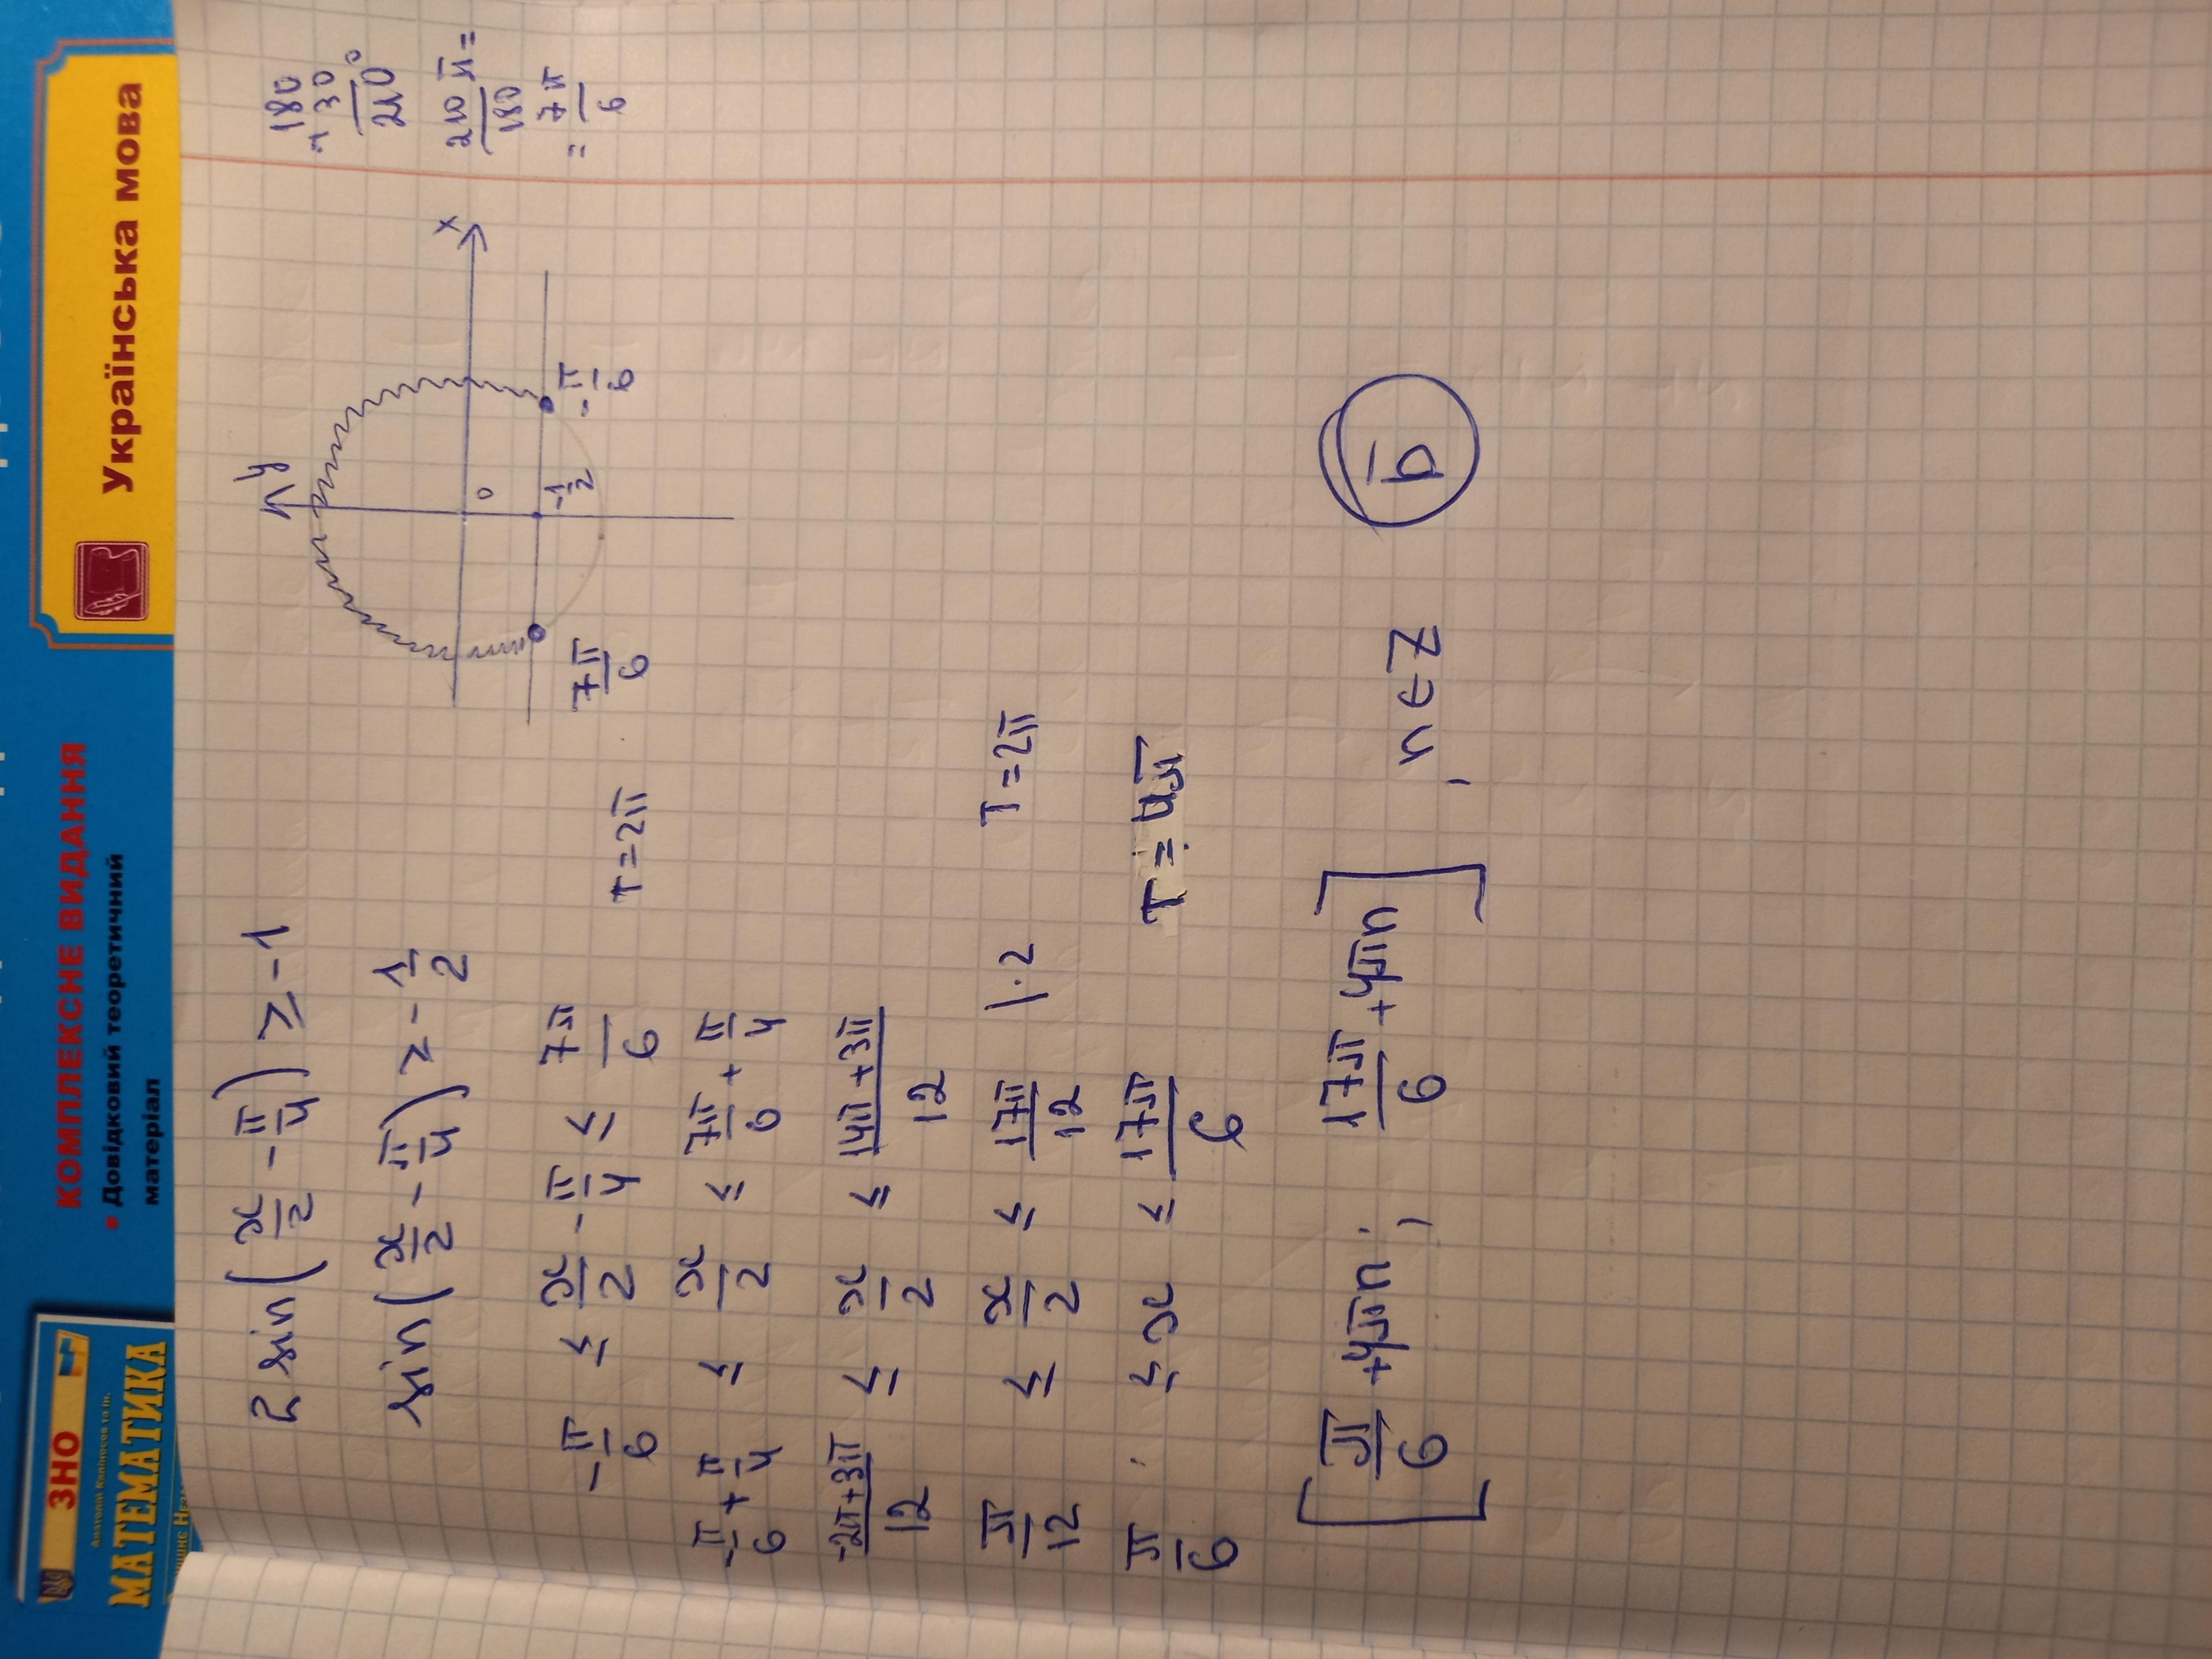 ЗНО
Анатолій Капіносов та ін.
МАТЕМАТИКА
КОМПЛЕКСНЕ ВИДАННЯ
• Довідковий теоретичний
матеріал
Українська мова
2 sin(x/2 - π/4) ≥ -1
sin(x/2 - π/4) ≥ -1/2
-π/6 ≤ x/2 - π/4 ≤ 7π/6 T = 2π
-π/6 + π/4 ≤ x/2 ≤ 7π/6 + π/4
(-2π+3π)/12 ≤ x/2 ≤ (14π+3π)/12
π/12 ≤ x/2 ≤ 17π/12 |·2 T = 2π
π/6 ≤ x ≤ 17π/6 T = 4π
[π/6 + 4πn; 17π/6 + 4πn], n ∈ Z Б
y
x
0
-1/2
7π/6
-π/6
180
+ 30
210°
210π/180 =
= 7π/6